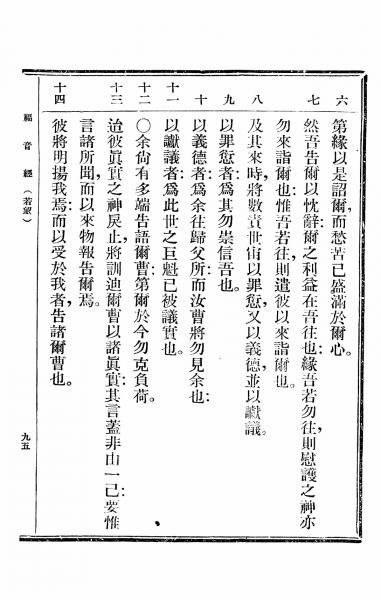 六 第緣以是詔爾，而愁苦已盛滿於爾心。
七 然吾告爾以忱辭，爾之利益在吾往也；緣吾若勿往，則慰護之神亦
勿來詣爾也；惟吾若往，則遣彼以來詣爾也。
八 及其來時，將數責世宙以罪愆，又以義德，並以讞議。
九 以罪愆者，爲其勿崇信吾也。
十 以義德者，爲余往歸父所，而汝曹將勿見余也；
十一 以讞議者，爲此世之巨魁，已被議實也。
十二 〇余尙有多端告語爾曹，第爾於今勿克負荷。
十三 迨彼眞實之神戾止，將訓迪爾曹以諸眞實；其言蓋非由一己，要惟
言諸所聞，而以來物報告爾焉。
十四 彼將明揚我焉；而以受於我者，告諸爾曹也。
福音經 （若望） 九五